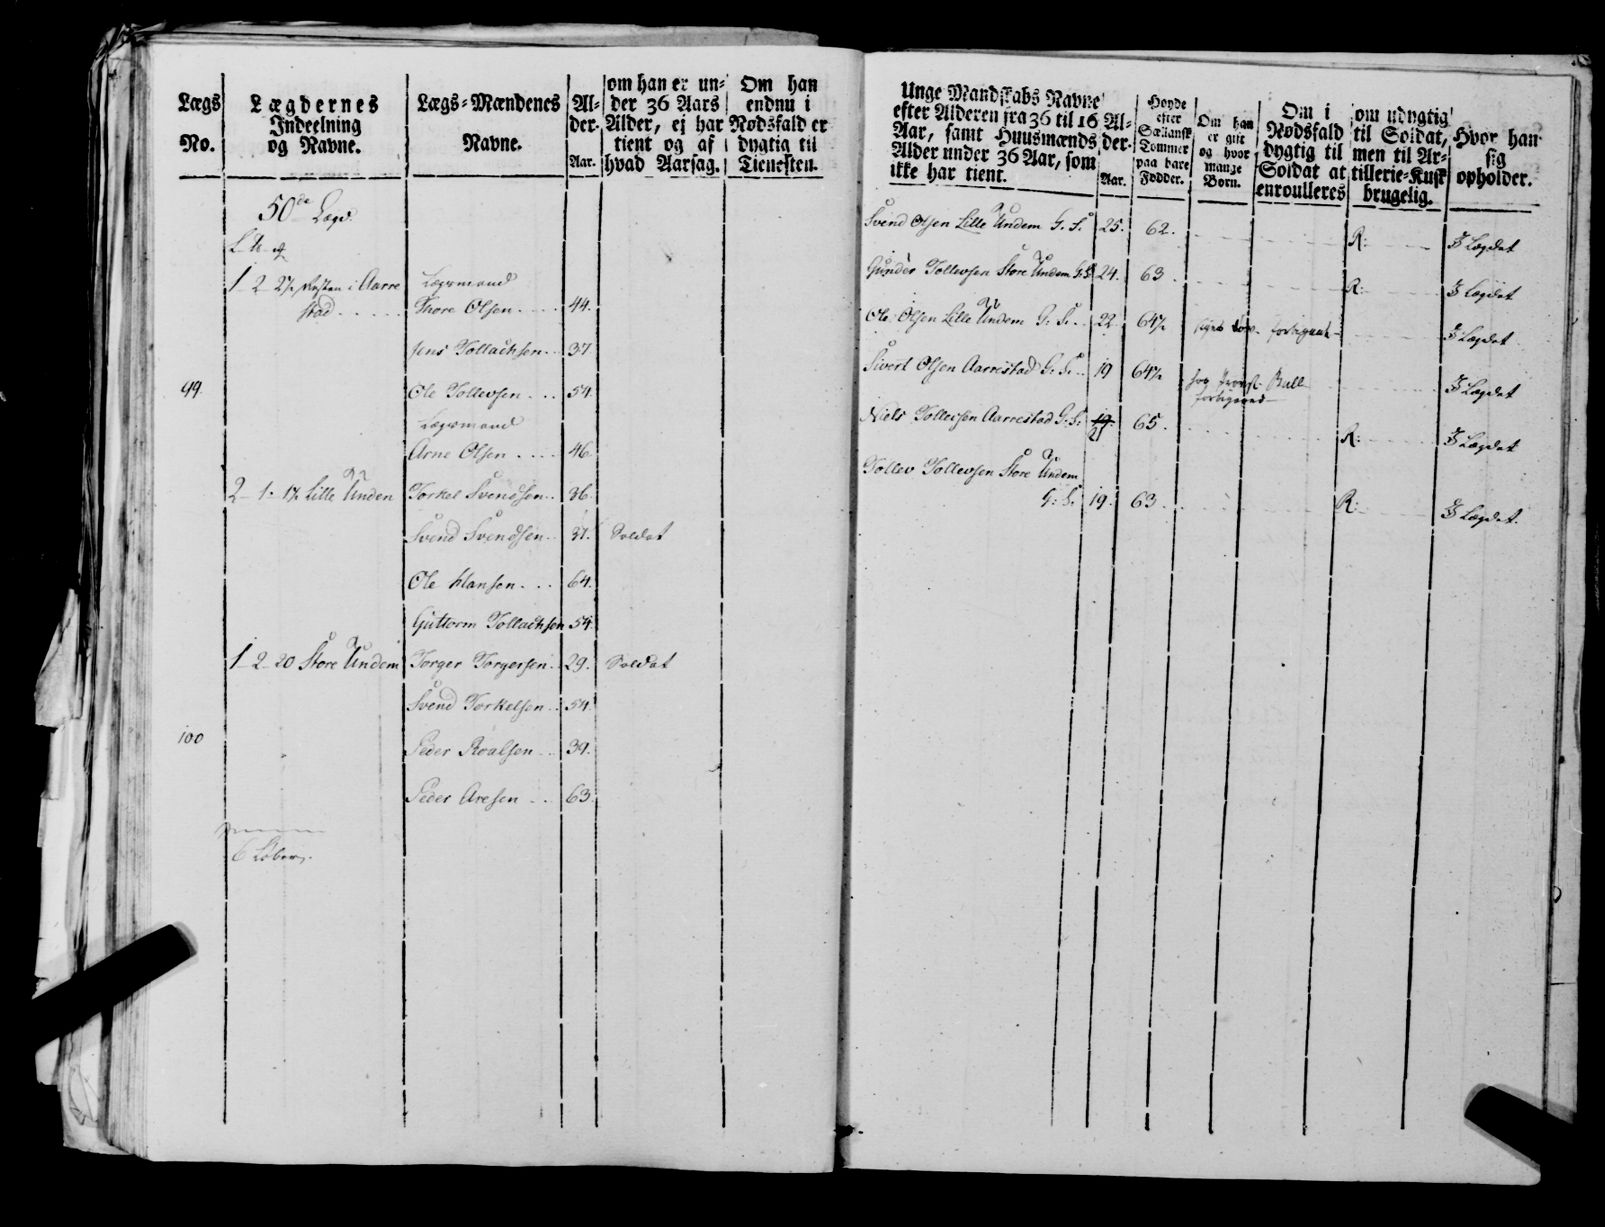 Lægs No.
Lægdernes Indeelning og Navne.
Lægs-Mændenes Navne.
Al-der. Aar.
om han er un-der 36 Aars Alder, ej har tient og af hvad Aarsag.
Om han endnu i Nødsfald er dygtig til Tienesten.
50de Lægd
1 - 2 - 2½ Resten i Aarre
stad . . . . .
Lægsmand
Thore Olsen . . . . 44.
Jens Tollachsen . . 37
99.
Ole Tollevsen . . . 54.
Lægsmand
Arne Olsen . . . . 46
2 - 1 - 1½ Lille Unden Torkel Svendsen . . 36.
Svend Svendsen . . 37. Soldat
Ole Hansen . . . 64.
Guttorm Tollachsen 54.
1 - 2 - 20 Store Undem Torger Torgersen . . 29. Soldat
Svend Torkelsen . . 54.
100
Peder Roalsen . . 39.
Peder Aresen . . . 63.
6 Løber
Unge Mandskabs Navne efter Alderen fra 36 til 16 Aar, samt Huusmænds Alder under 36 Aar, som ikke har tient.
Al-der. Aar.
Høyde efter Siællansk Tommer paa bare Fødder.
Om han er gift og hvor mange Børn.
Om i Nødsfald dygtig til Soldat at enroulleres
om udygtig til Soldat, men til Ar-tillerie-Kusk brugelig.
Hvor han sig opholder.
Svend Olsen Lille Undem G. S. 25. 62. R: I Lægdet
Gunder Tollevsen Store Undem G. S. 24. 63. R: I Lægdet
Ole Olsen Lille Undem G: S: . . 22. 64½ I Lægdet
Sivert Olsen Aarrestad G: S: . . 19 64½ I Lægdet
Niels Tollevsen Aarrestad G: S: 19. 21 65. R: I Lægdet
Tollev Tollevsen Store Undem
G: S: 19. 63. R: I Lægdet.